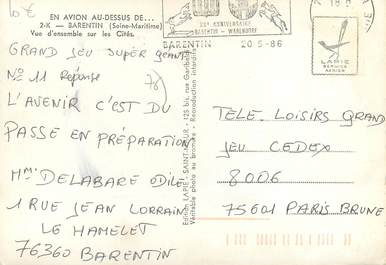 10€
EN AVION AU-DESSUS DE...
2-K — BARENTIN (Seine-Maritime)
Vue d'ensemble sur les Cités.
GRAND JEU SUPER GEANT
N° 11 Réponse
76)
L'AVENIR C'EST DU
PASSE EN PRÉPARATION
Mme DELABARE ODILE
1 RUE JEAN LORRAIN
LE HAMELET
76360 BARENTIN
Edition LAPIE, SAINT-MAUR - 125 bis, rue Garibaldi
Véritable photo au bromure - Reproduction interdite
ANNIVERSAIRE
BARENTIN - WARENDORF
BARENTIN 20-5-86
LAPIE
SERVICE
AERIEN
TELE-LOISIRS GRAND
JEU CEDEX
8006
75601 PARIS BRUNE